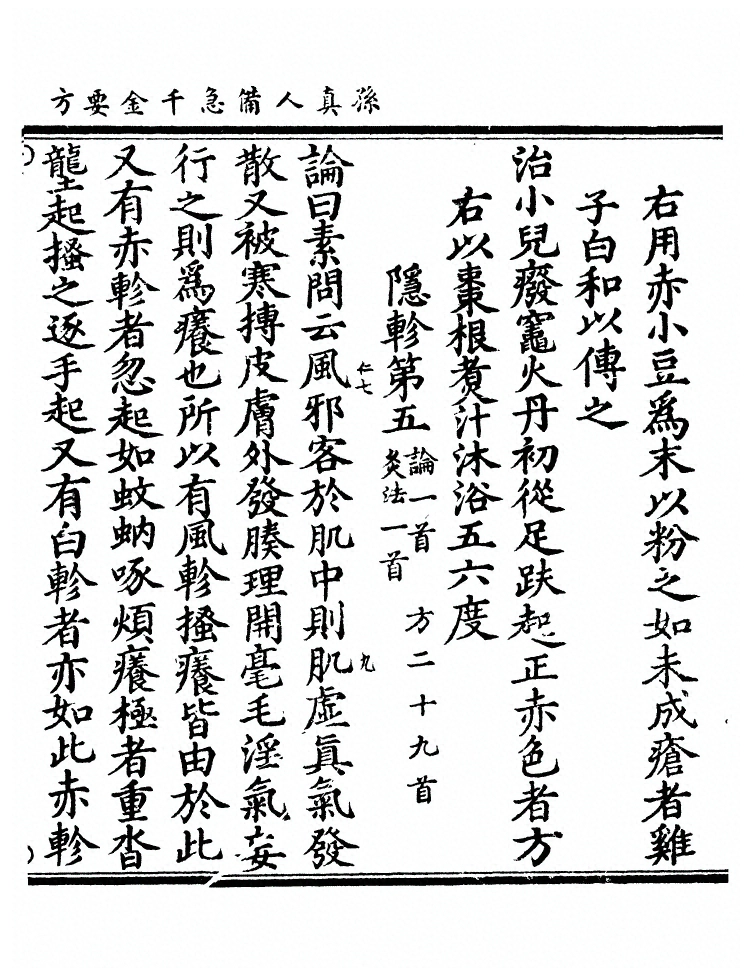 孫真人備急千金要方
右用赤小豆爲末以粉之如未成瘡者雞
子白和以傅之
治小兒癈竈火丹初從足趺起正赤色者方
右以棗根煑汁沐浴五六度
隱軫第五 論一首 方二十九首 灸法一首
仁七 九
論曰素問云風邪客於肌中則肌虛眞氣發
散又被寒搏皮膚外發腠理開毫毛淫氣妄
行之則爲癢也所以有風軫搔癢皆由於此
又有赤軫者忽起如蚊蚋啄煩癢極者重沓
壟起搔之逐手起又有白軫者亦如此赤軫